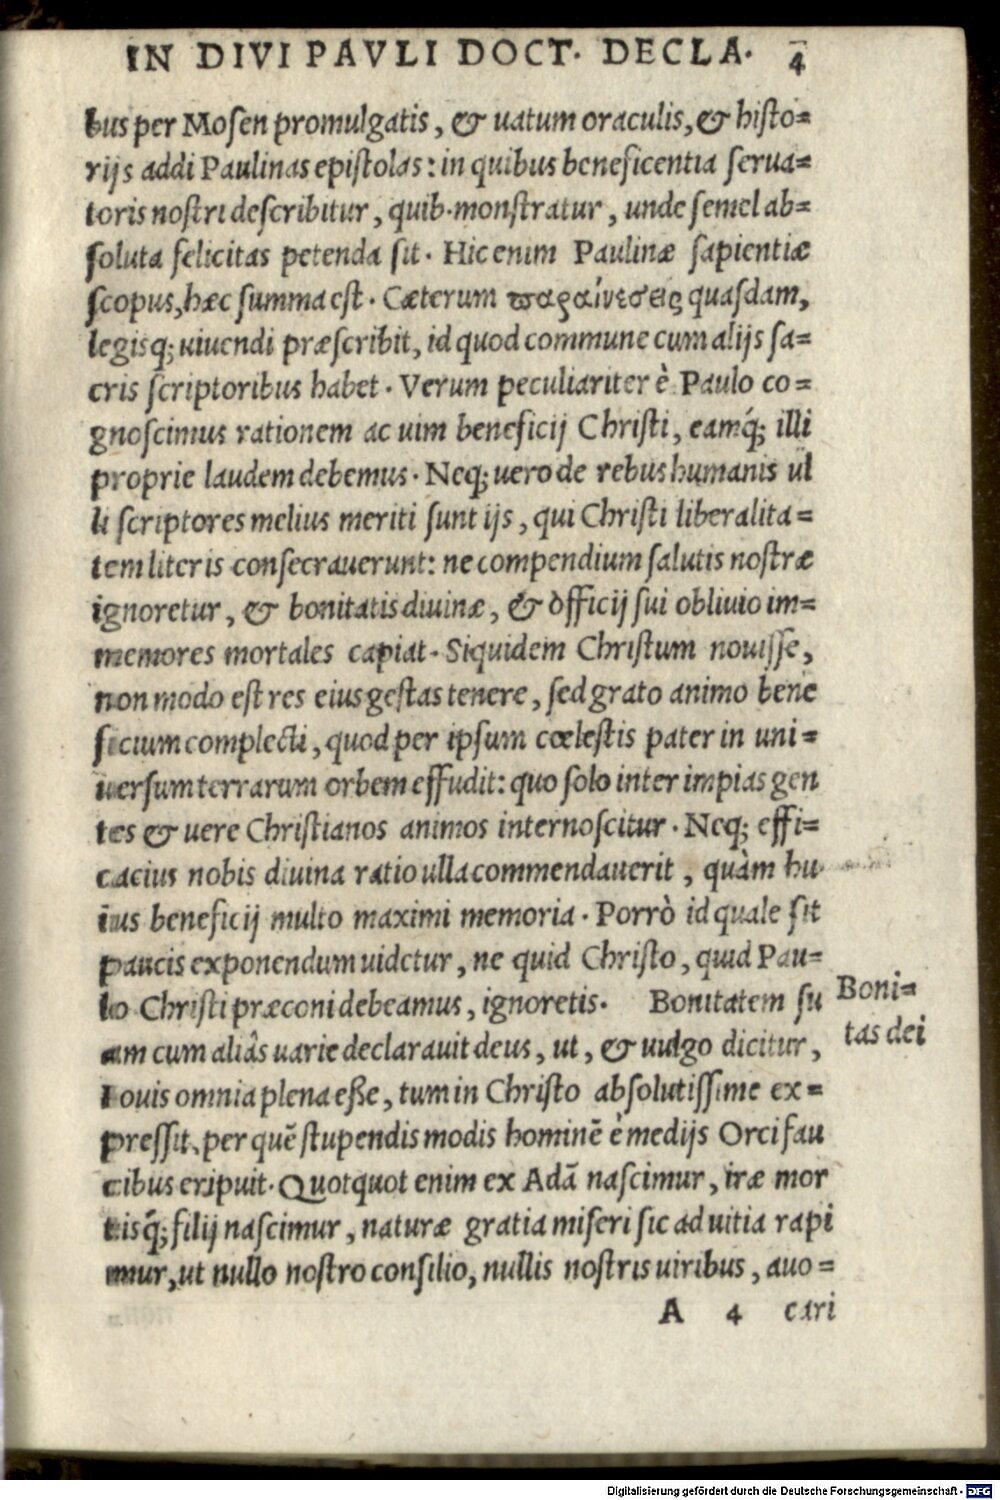 IN DIVI PAVLI DOCT. DECLA. 4
bus per Mosen promulgatis, & uatum oraculis, & histo=
rijs addi Paulinas epistolas: in quibus beneficentia serua=
toris nostri describitur, quib. monstratur, unde semel ab=
soluta felicitas petenda sit. Hic enim Paulinæ sapientiæ
scopus, hæc summa est. Cæterum παραίνεσεις quasdam,
legisq; uiuendi præscribit, id quod commune cum alijs sa=
cris scriptoribus habet. Verum peculiariter è Paulo co=
gnoscimus rationem ac uim beneficij Christi, eamq́; illi
proprie laudem debemus. Neq; uero de rebus humanis ul
li scriptores melius meriti sunt ijs, qui Christi liberalita=
tem literis consecrauerunt: ne compendium salutis nostræ
ignoretur, & bonitatis diuinæ, & òfficij sui obliuio im=
memores mortales capiat. Siquidem Christum nouisse,
non modo est res eius gestas tenere, sed grato animo bene
ficium complecti, quod per ipsum cœlestis pater in uni=
uersum terrarum orbem effudit: quo solo inter impias gen
tes & uere Christianos animos internoscitur. Neq; effi=
cacius nobis diuina ratio ulla commendauerit, quàm hu
ius beneficij multo maximi memoria. Porrò id quale sit
paucis exponendum uidetur, ne quid Christo, quid Pau=
lo Christi præconi debeamus, ignoretis. Bonitatem su
am cum aliâs uarie declarauit deus, ut, & uulgo dicitur,
Iouis omnia plena eße, tum in Christo absolutissime ex=
pressit, per quẽ stupendis modis hominẽ è medijs Orci fau
cibus eripuit. Quotquot enim ex Adã nascimur, iræ mor
tisq́; filij nascimur, naturæ gratia miseri sic ad uitia rapi
mur, ut nullo nostro consilio, nullis nostris uiribus, auo=
A 4 cari
Boni=
tas dei
Digitalisierung gefördert durch die Deutsche Forschungsgemeinschaft - DFG